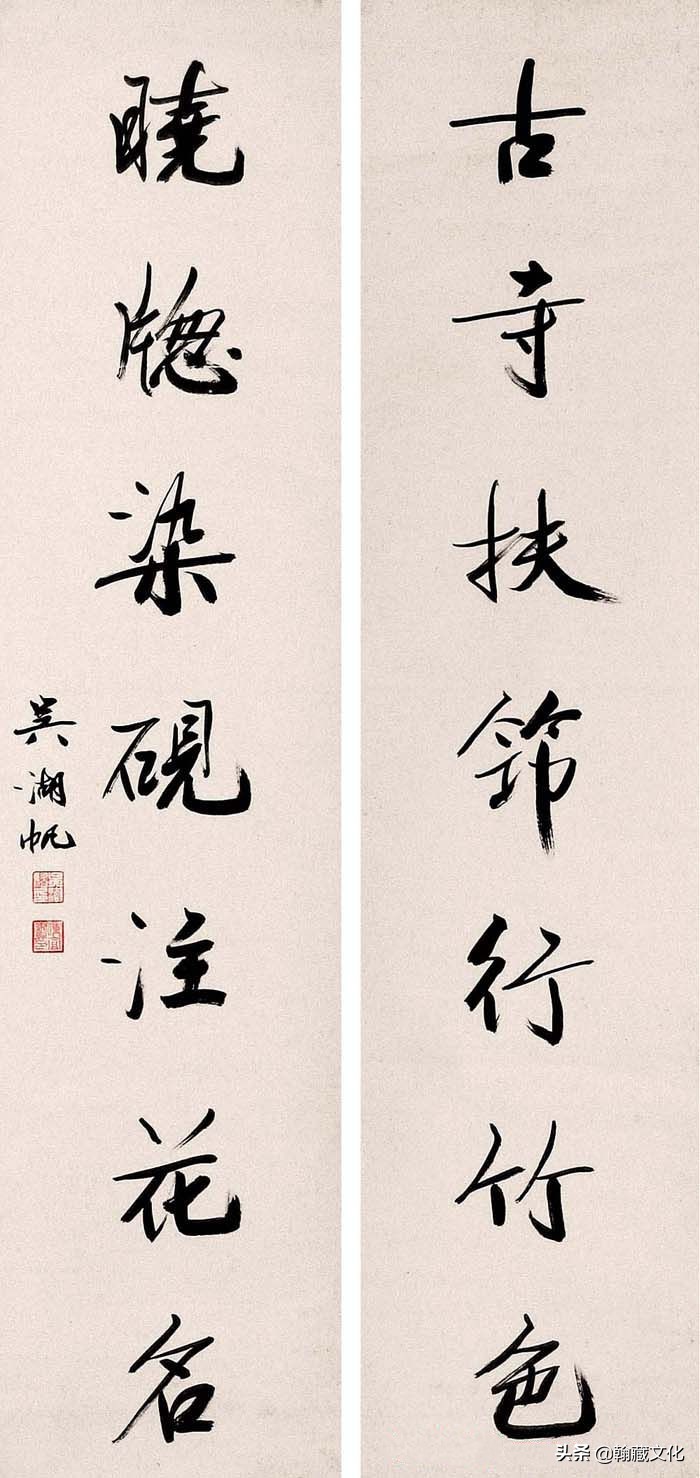 古寺扶筇行竹色
曉牕染硯注花名
吳湖帆
头条 @翰藏文化